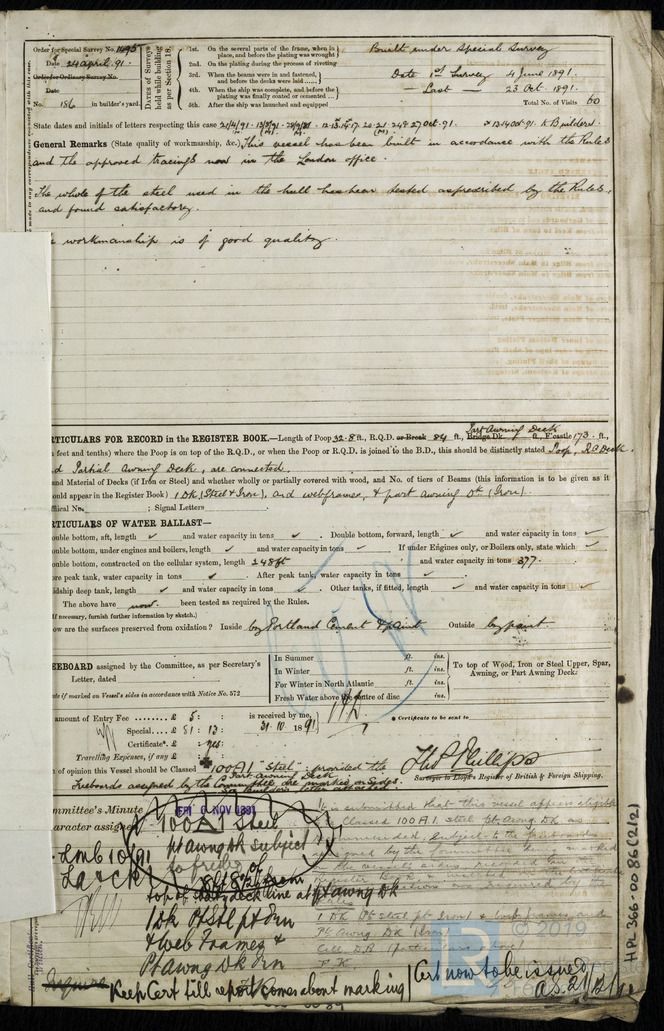 Order for Special Survey No. 1495
Date 24 April 91.
Order for Ordinary Survey No.
Date
No. 186 in builder's yard.
Dates of Surveys held while building as per Section 18.
1st. On the several parts of the frame, when in place, and before the plating was wrought
2nd. On the plating during the process of riveting
3rd. When the beams were in and fastened, and before the decks were laid
4th. When the ship was complete, and before the plating was finally coated or cemented
5th. After the ship was launched and equipped
Built under Special Survey
Date 1st Survey 4 June 1891.
Last 23 Oct. 1891.
Total No. of Visits 60
State dates and initials of letters respecting this case
General Remarks (State quality of workmanship, &c.) This vessel has been built in accordance with the Rules
and the approved tracings now in the London office.
The whole of the steel used in the hull has been tested as prescribed by the Rules,
and found satisfactory.
workmanship is of good quality.
Part Awning Deck
RTICULARS FOR RECORD in the REGISTER BOOK.—Length of Poop 32.8 ft., R.Q.D. or Break 84 ft., Bridge Dk. ft., F'castle 173 ft.,
feet and tenths) where the Poop is on top of the R.Q.D., or when the Poop or R.Q.D. is joined to the B.D., this should be distinctly stated Poop, R.Q.Deck
d Partial Awning Deck, are connected
nd Material of Decks (if Iron or Steel) and whether wholly or partially covered with wood, and No. of tiers of Beams (this information is to be given as it
ould appear in the Register Book) 1 Dk (Steel & Iron), and webframes, & part awning Dk (Iron).
fficial No. ; Signal Letters
RTICULARS OF WATER BALLAST—
ouble bottom, aft, length ✓ and water capacity in tons ✓ . Double bottom, forward, length ✓ and water capacity in tons ✓
ouble bottom, under engines and boilers, length ✓ and water capacity in tons ✓ If under Engines only, or Boilers only, state which ✓
ouble bottom, constructed on the cellular system, length 248 ft and water capacity in tons 377.
re peak tank, water capacity in tons ✓ . After peak tank, water capacity in tons ✓
idship deep tank, length ✓ and water capacity in tons ✓ Other tanks, if fitted, length ✓ and water capacity in tons ✓
The above have now been tested as required by the Rules.
(If necessary, furnish further information by sketch.)
ow are the surfaces preserved from oxidation? Inside by Portland Cement & paint Outside by paint.
EEBOARD assigned by the Committee, as per Secretary's
Letter, dated
te if marked on Vessel's sides in accordance with Notice No. 572
In Summer ft. ins.
In Winter ft. ins.
For Winter in North Atlantic ft. ins.
Fresh Water above the centre of disc ins.
To top of Wood, Iron or Steel Upper, Spar, Awning, or Part Awning Deck.
amount of Entry Fee £ 5 :
Special £ 51 : 13 :
Certificate*. £ yes:
Travelling Expenses, if any £
is received by me,
31.10 1891
* Certificate to be sent to
m of opinion this Vessel should be Classed 100A1 "Steel": provided the
Part Awning Deck
Freeboards assigned by the Committee are marked on Sides.
Thos Phillips
Surveyor to Lloyd's Register of British & Foreign Shipping.
ommittee's Minute
FRI 6 NOV 1891
haracter assigned
100A1 Steel
pt awng dk subject
to freeb
Lmb 10/91
LA & CH
top of deck line at pt awng dk
1 Dk pt Stl pt Irn
& Web Frames &
Pt awng dk Irn
It is submitted that this vessel appears eligible
Classed 100A1. steel pt. Awng. Dk as
1 Dk (pt steel pt Iron) & web frames, and
Pt Awng Dk (Iron)
Cell D.B. (particulars above)
F.K.
Keep Cert till report comes about marking
Cert now to be issued
© 2019
HPL 366-0086 (2/2)